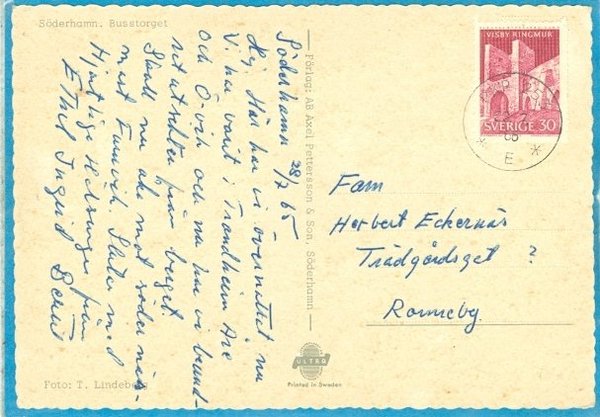 Söderhamn. Busstorget
Söderhamn 28/7 65
Hej Här har vi övernattat nu
Vi har varit i Trondheim Åre
och Ö-vich och nu har vi beund-
rat utsikten från berget.
Skall nu åka mot söder när-
mast Furuvik. Slutar med
Hjärtliga Hälsningar från
Ethel Ingrid Bernt
Foto: T. Lindeberg
— Förlag: AB Axel Pettersson & Son, Söderhamn —
VISBY RINGMUR
SVERIGE 30
E
Fam
Herbert Eckernäs
Trädgårdsgat ?
Ronneby.
ULTRA
Printed in Sweden